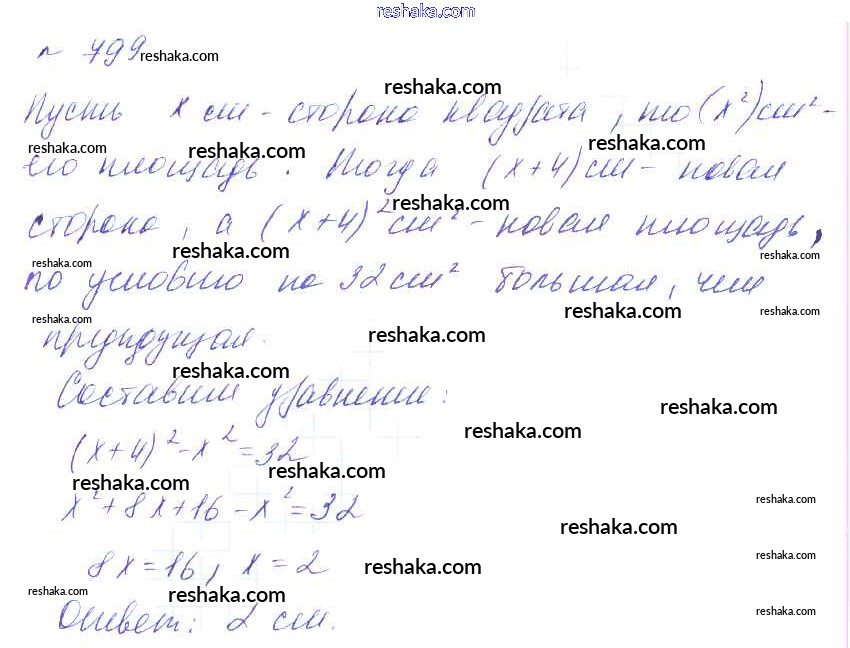 reshaka.com
№ 799 reshaka.com
reshaka.com
Пусть x см - сторона квадрата, то (x²) см² -
reshaka.com reshaka.com reshaka.com
его площадь. Тогда (x+4) см - новая
reshaka.com
сторона, а (x+4)² см² - новая площадь,
reshaka.com reshaka.com reshaka.com
по условию на 32 см² большая, чем
reshaka.com reshaka.com reshaka.com
предыдущая.
reshaka.com reshaka.com
Составим уравнение:
reshaka.com
reshaka.com
(x+4)² - x² = 32
reshaka.com reshaka.com
x² + 8x + 16 - x² = 32
reshaka.com
reshaka.com
8x = 16, x = 2
reshaka.com reshaka.com
reshaka.com reshaka.com
Ответ: 2 см.
reshaka.com